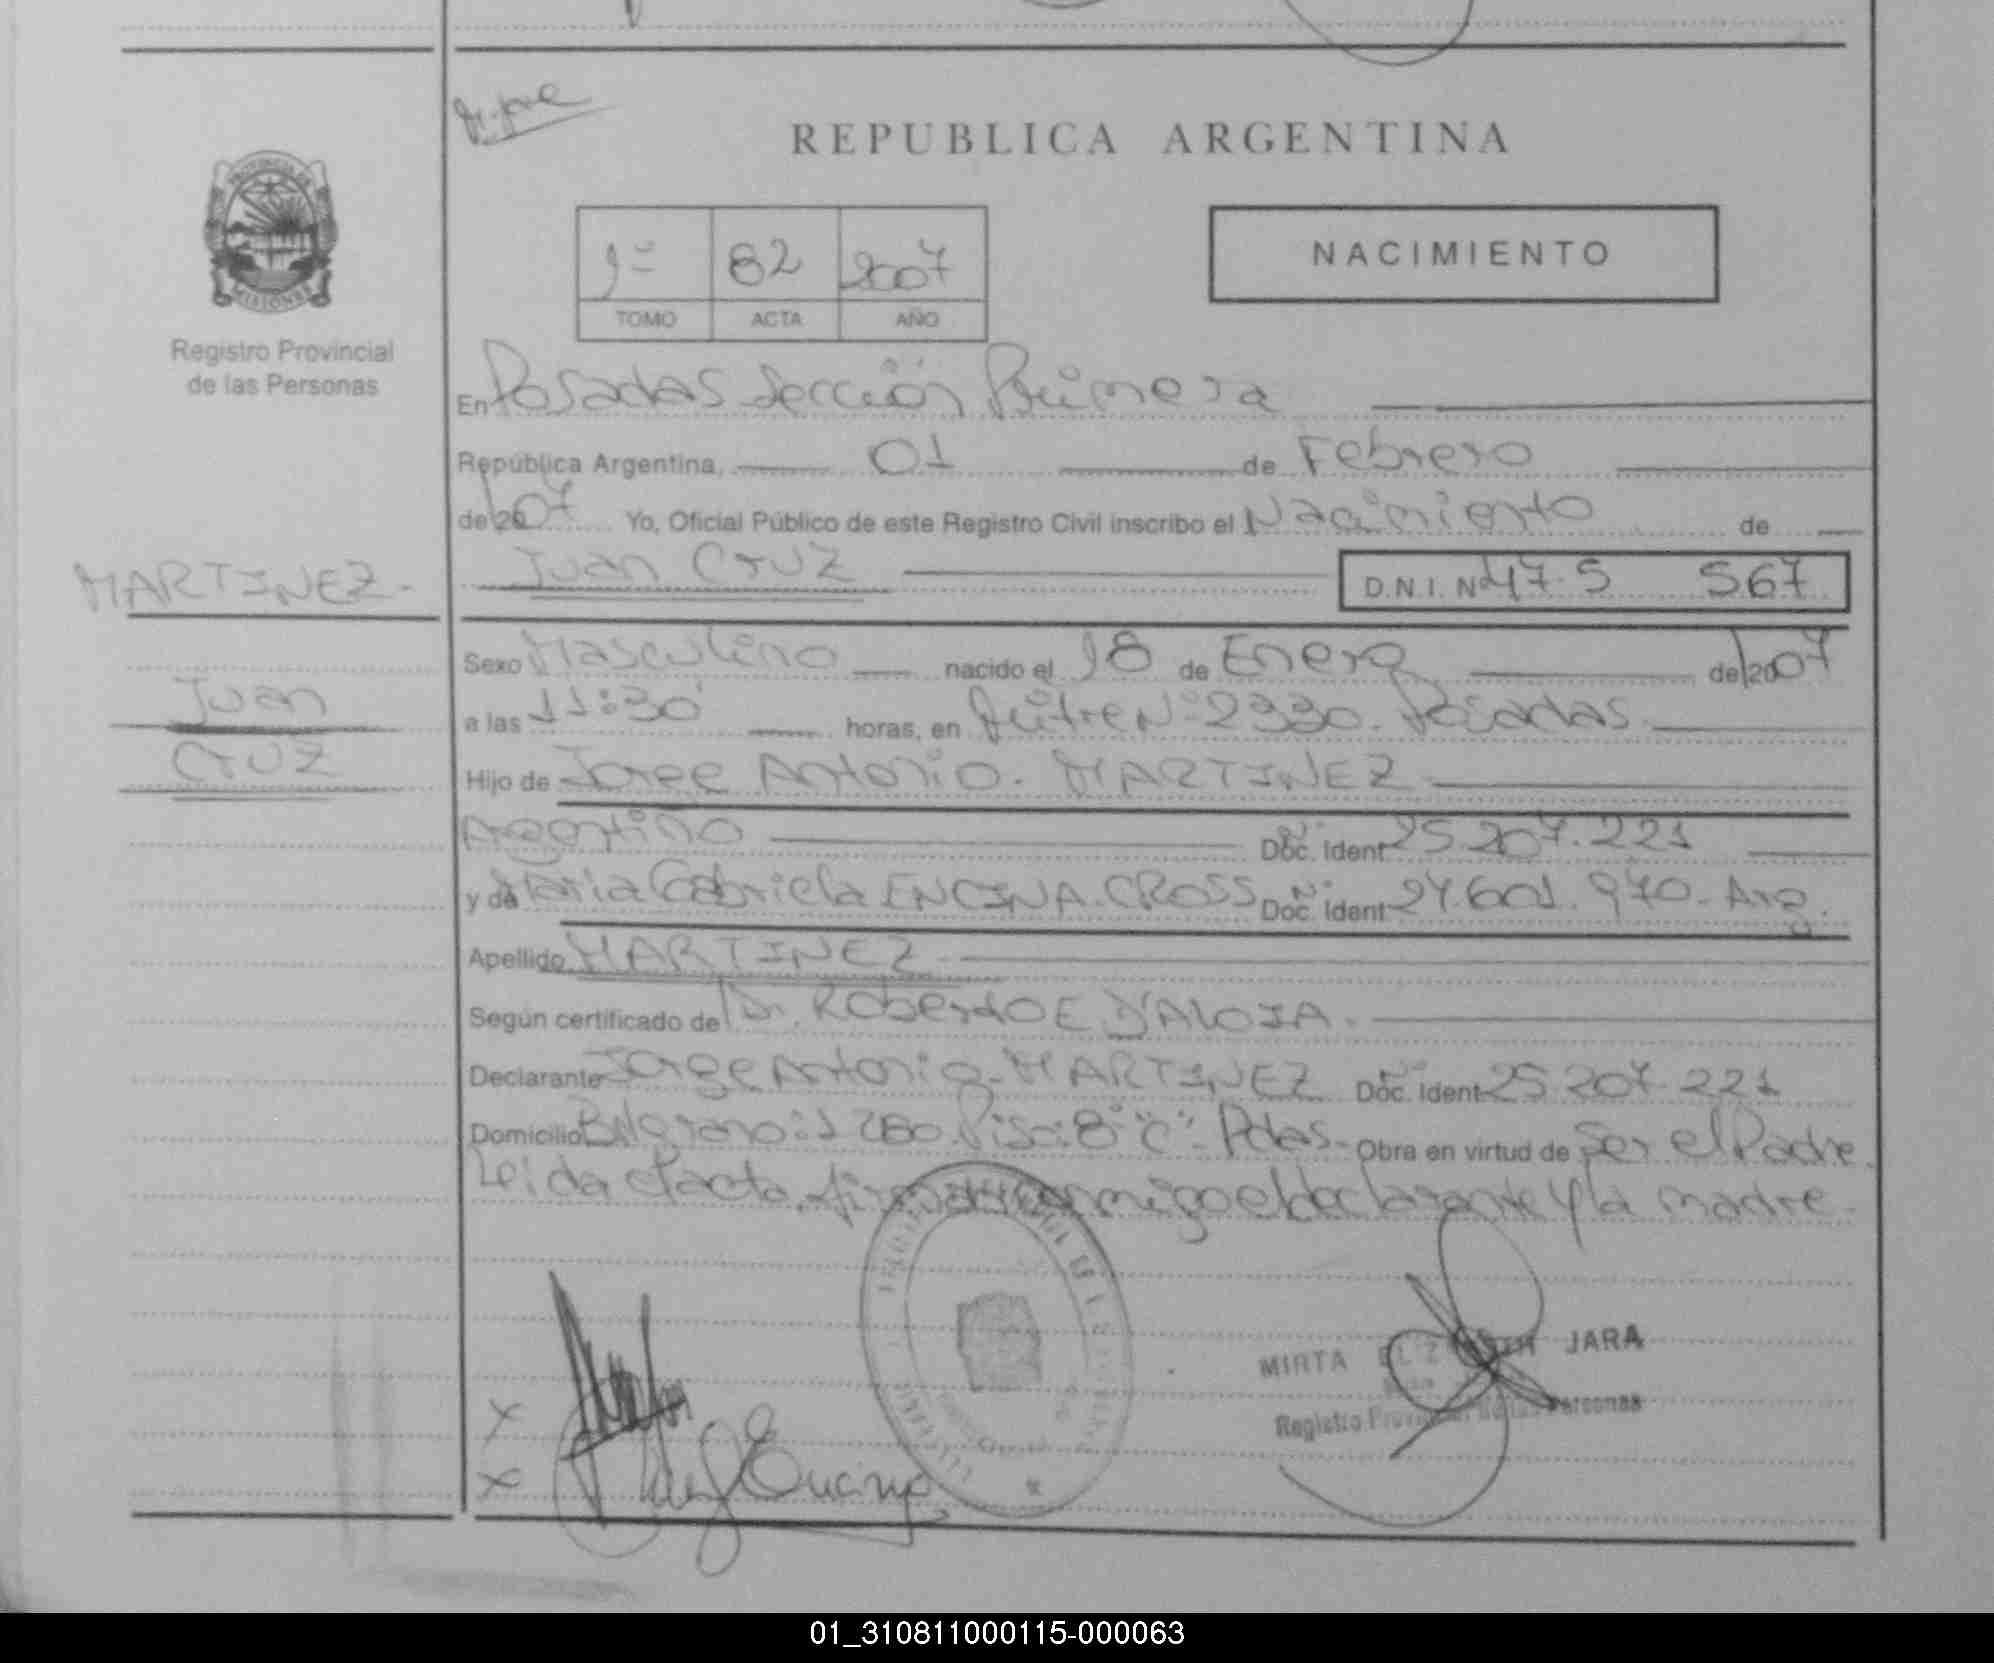 REPUBLICA ARGENTINA
PROVINCIA DE
MISIONES
Registro Provincial
de las Personas
1º 82 2007
TOMO ACTA AÑO
NACIMIENTO
En Posadas Sección Primera
República Argentina, 01 de Febrero
de 2007 Yo, Oficial Público de este Registro Civil inscribo el Nacimiento de
MARTINEZ-
Juan Cruz
D.N.I. Nº 47.5 567
Juan
Cruz
Sexo Masculino nacido el 18 de Enero de 2007
a las 11:30 horas, en Nº 2330. Posadas
Hijo de Jorge Antonio. MARTINEZ
Argentino Doc. Ident 25.207.221
y de Maria Gabriela ENCINA.CROSS Doc. Ident 24.601.970-Arg.
Apellido MARTINEZ-
Según certificado de Dr. Roberto E D'ALOIA.
Declarante Jorge Antonio-MARTINEZ Doc. Ident 25 207.221
Domicilio Belgrano:1280.Piso:8º"C"-Pdas- Obra en virtud de ser el Padre.
Leida el acta, firman conmigo el declarante y la madre.
MIRTA JARA
Registro Provincial de las Personas
01_310811000115-000063